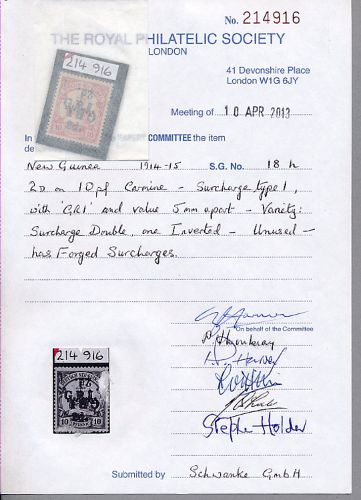 No. 214916
THE ROYAL PHILATELIC SOCIETY
LONDON
41 Devonshire Place
London W1G 6JY
214 916
2d.
G.R.I.
10 10
Meeting of 10 APR 2013
In
EXPERT COMMITTEE the item
de
New Guinea 1914-15 S.G. No. 18h
2D on 10pf Carmine - Surcharge type 1,
with 'GRI' and value 5mm apart - Variety:
Surcharge Double, one Inverted - Unused -
has Forged Surcharges.
On behalf of the Committee
214 916
G.R.I.
10 10
Stephe Holder
Submitted by Schwanke GmbH